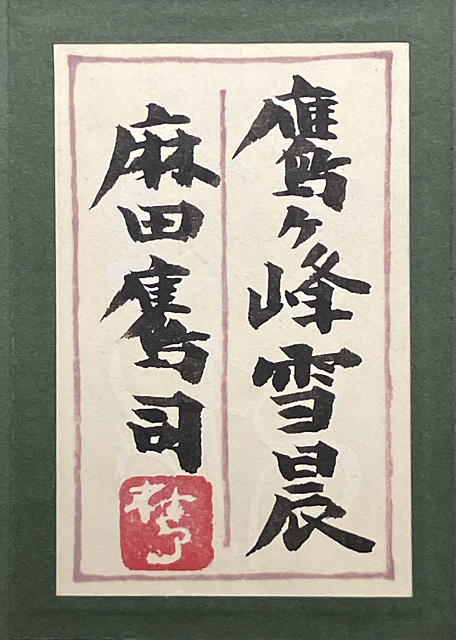 鷹ヶ峰雪晨
麻田鷹司